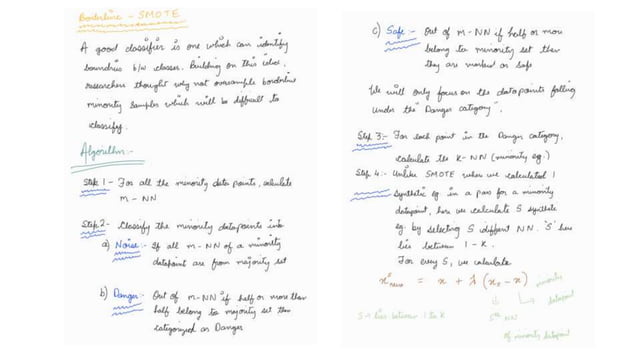 Borderline - SMOTE
A good classifier is one which can identify
boundries b/w classes. Building on this idea,
researchers thought why not oversample borderline
minority samples which will be difficult to
classify.
Algorithm:-
Step 1 - For all the minority data points, calculate
m - NN
Step 2 - Classify the minority datapoints into
a) Noise:- If all m-NN of a minority
datapoint are from majority set
b) Danger:- Out of m-NN if half or more than
half belong to majority set then
categorized as Danger
c) Safe:- Out of m-NN if half or more
belong to minority set then
they are marked as safe
We will only focus on the datapoints falling
under the "Danger category".
Step 3:- For each point in the Danger category,
calculate the K-NN (minority eg.)
Step 4:- Unlike SMOTE where we calculated 1
Synthetic eg. in a pass for a minority
datapoint, here we calculate S synthetic
eg. by selecting S different NN. 'S' here
lies between 1 - K.
For every S, we calculate
= x + λ (xs - x)
minority
datapoint
Sth NN
of minority datapoint
S → lies between 1 to K